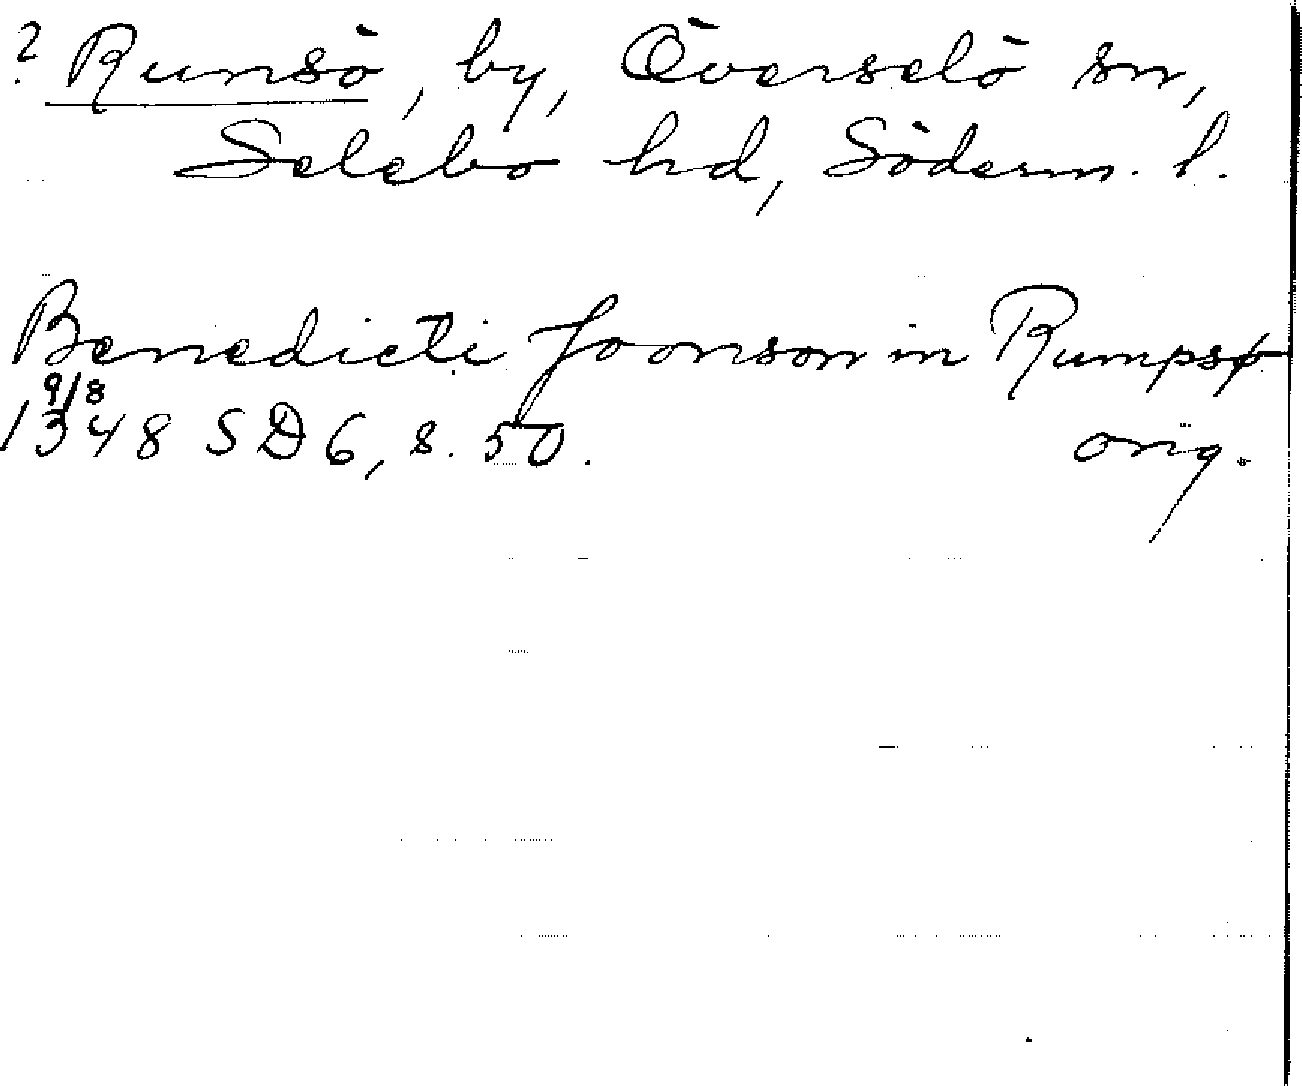 ? Rumsö, by, Överselö sn,
Selebo hd, Söderm. l.
Benedicti Joonson in Rumpsø
9/8
1348 SD 6, s. 50. orig.